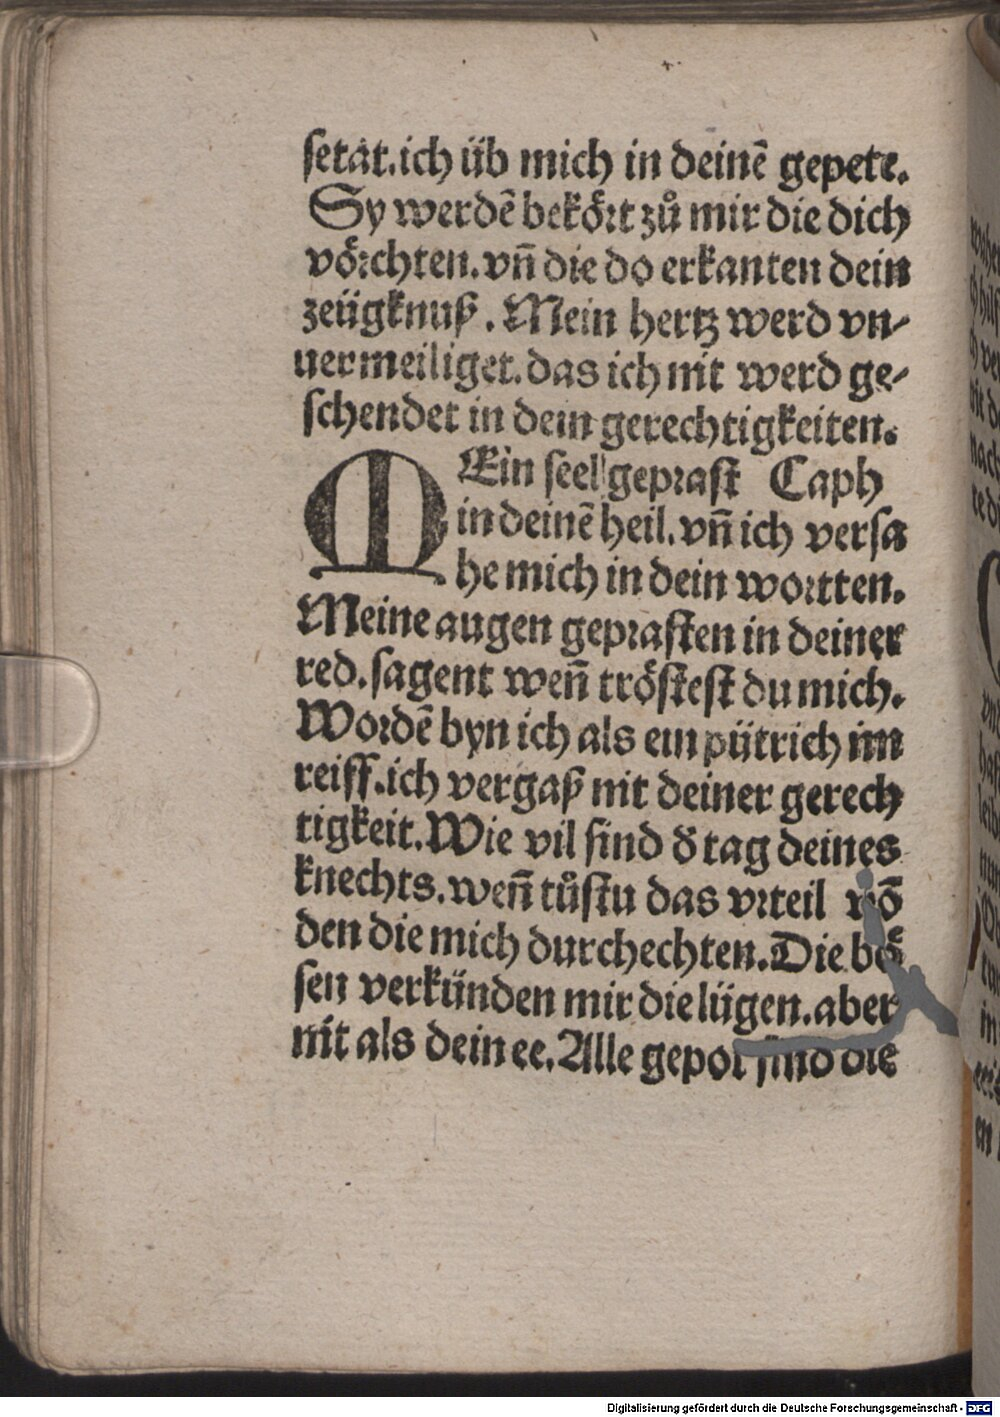 setat.ich üb mich in deinē gepete.
Sy werdē bekört zů mir die dich
vörchten.vn̄ die do erkanten dein
zeügknuß. Mein hertz werd vn-
uermeiliget.das ich nit werd ge-
schendet in dein gerechtigkeiten.
MEin seel geprast Caph
in deinē heil.vn̄ ich versa
he mich in dein wortten.
Meine augen geprasten in deiner
red.sagent wen̄ tröstest du mich.
Wordē byn ich als ein pütrich im
reiff.ich vergaß nit deiner gerech
tigkeit.Wie vil sind d̓ tag deines
knechts.wen̄ tůstu das vrteil vō
den die mich durchechten.Die bö
sen verkünden mir die lügen.aber
nit als dein ee.Alle gepot sind die
Digitalisierung gefördert durch die Deutsche Forschungsgemeinschaft - DFG